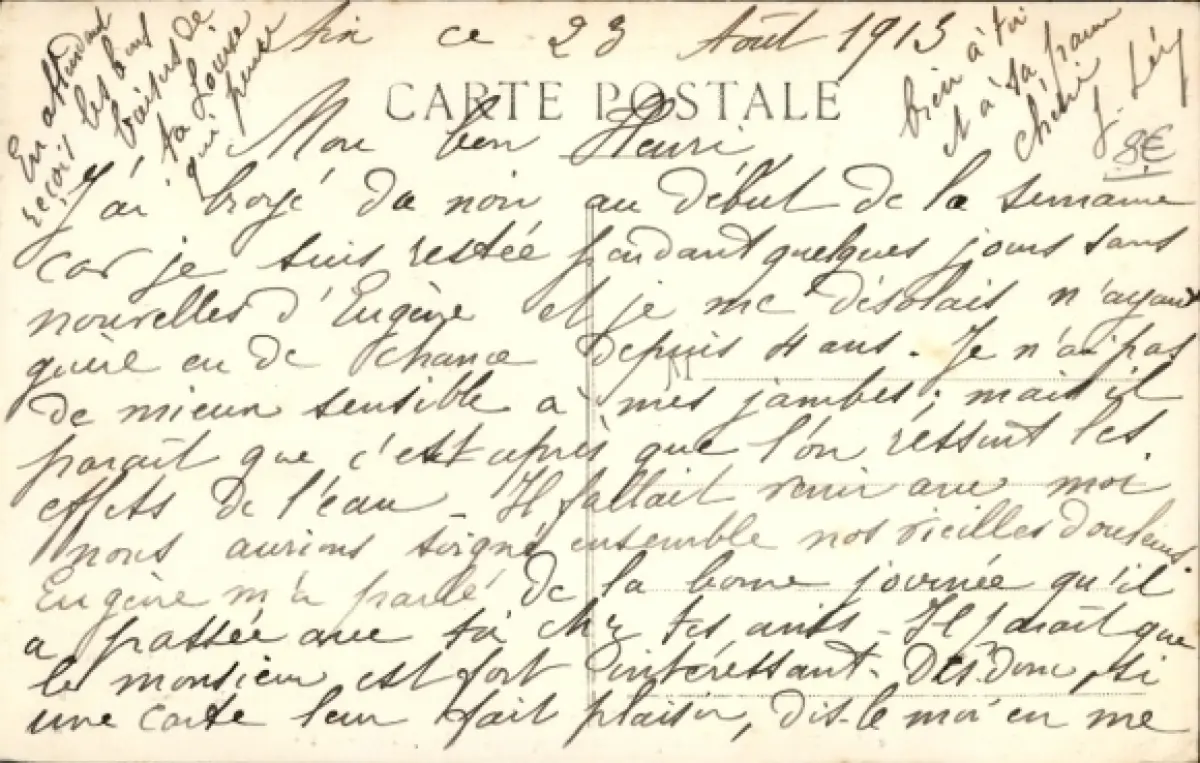 Aix ce 23 Août 1913
CARTE POSTALE
Mon bon Henri
J'ai broyé du noir au début de la semaine
car je suis restée pendant quelques jours sans
nouvelles d'Eugène et je me désolais n'ayant
guère eu de chance depuis 4 ans. Je n'ai pas
de mieux sensible à mes jambes; mais il
paraît que c'est après que l'on ressent les
effets de l'eau - Il fallait venir avec moi
nous aurions soigné ensemble nos vieilles douleurs.
Eugène m'a parlé de la bonne journée qu'il
a passée avec toi chez tes amis - Il paraît que
le monsieur est fort intéressant. Dis-donc, si
une carte leur fait plaisir, dis-le moi en me
En attendant
reçois les bons
baisers de
ta Louise
qui pense
bien à toi
et à ta
chérie
8€